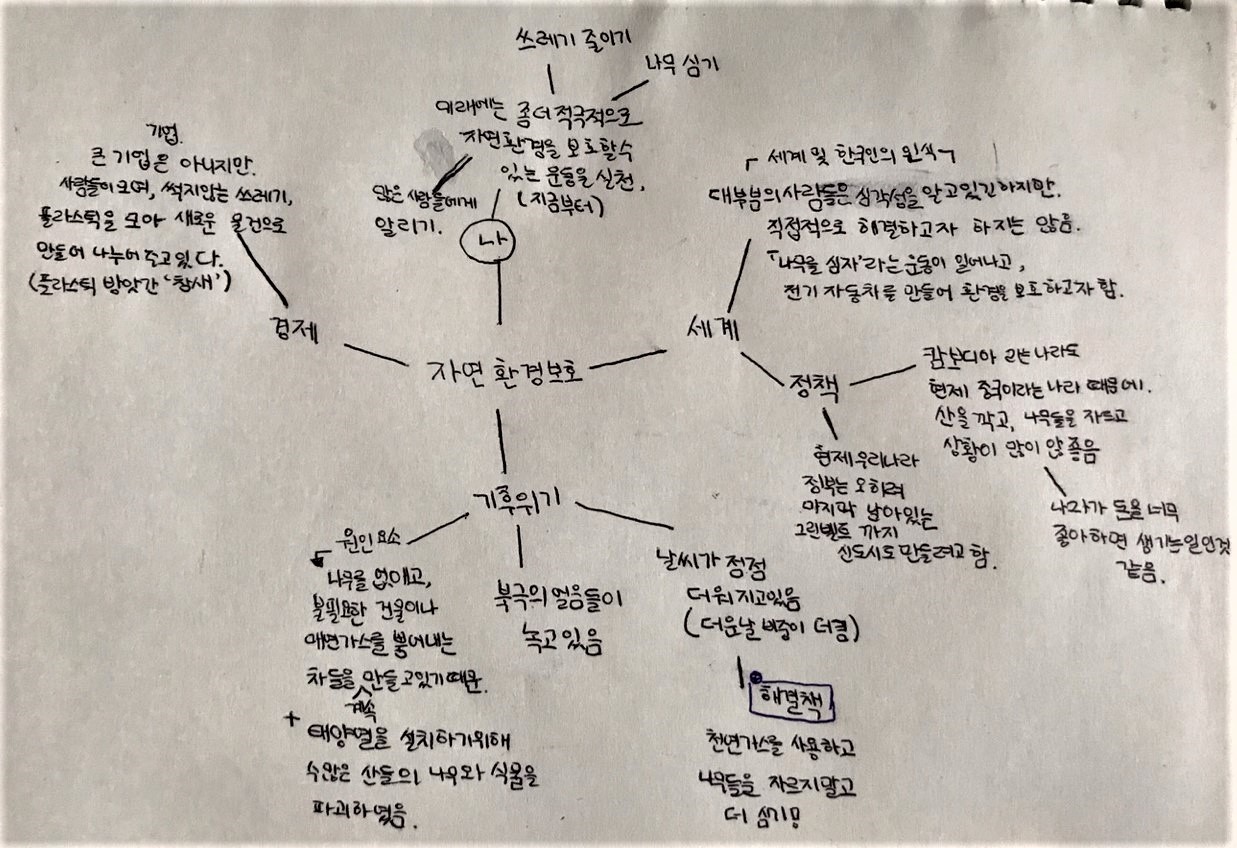 쓰레기 줄이기
나무 심기
미래에는 좀 더 적극적으로
자연환경을 보호할수
있는 운동을 실천,
(지금부터)
많은 사람들에게
알리기.
나
기업.
큰 기업은 아니지만.
사람들이 모여, 썩지않는 쓰레기,
플라스틱을 모아 새로운 물건으로
만들어 나누어 주고 있다.
(플라스틱 방앗간 '참새')
경제
「세계 및 한국인의 인식」
대부분의 사람들은 심각성을 알고있긴하지만.
직접적으로 해결하고자 하지는 않음.
「나무를 심자'라는 운동이 일어나고,
전기 자동차를 만들어 환경을 보호하고자 함.
세계
자연 환경보호
정책
캄보디아 라는 나라도
현제 중국이라는 나라 때문에.
산을 깍고, 나무들을 자르고
상황이 많이 않좋음
나라가 돈을 너무
좋아하면 생기는일인것
같음.
현제 우리나라
정부는 오히려
마지막 남아있는
그린벨트 까지
신도시로 만들려고 함.
기후위기
원인 요소
나무를 없애고,
불필요한 건물이나
매연가스를 뿜어내는
차들을 계속 만들고있기 때문.
+ 태양열을 설치하기위해
수많은 산들의 나무와 식물을
파괴하였음.
북극의 얼음들이
녹고 있음
날씨가 점점
더워 지고있음
(더운날 비중이 더큼)
해결책
천연가스를 사용하고
나무들을 자르지말고
더 심기!